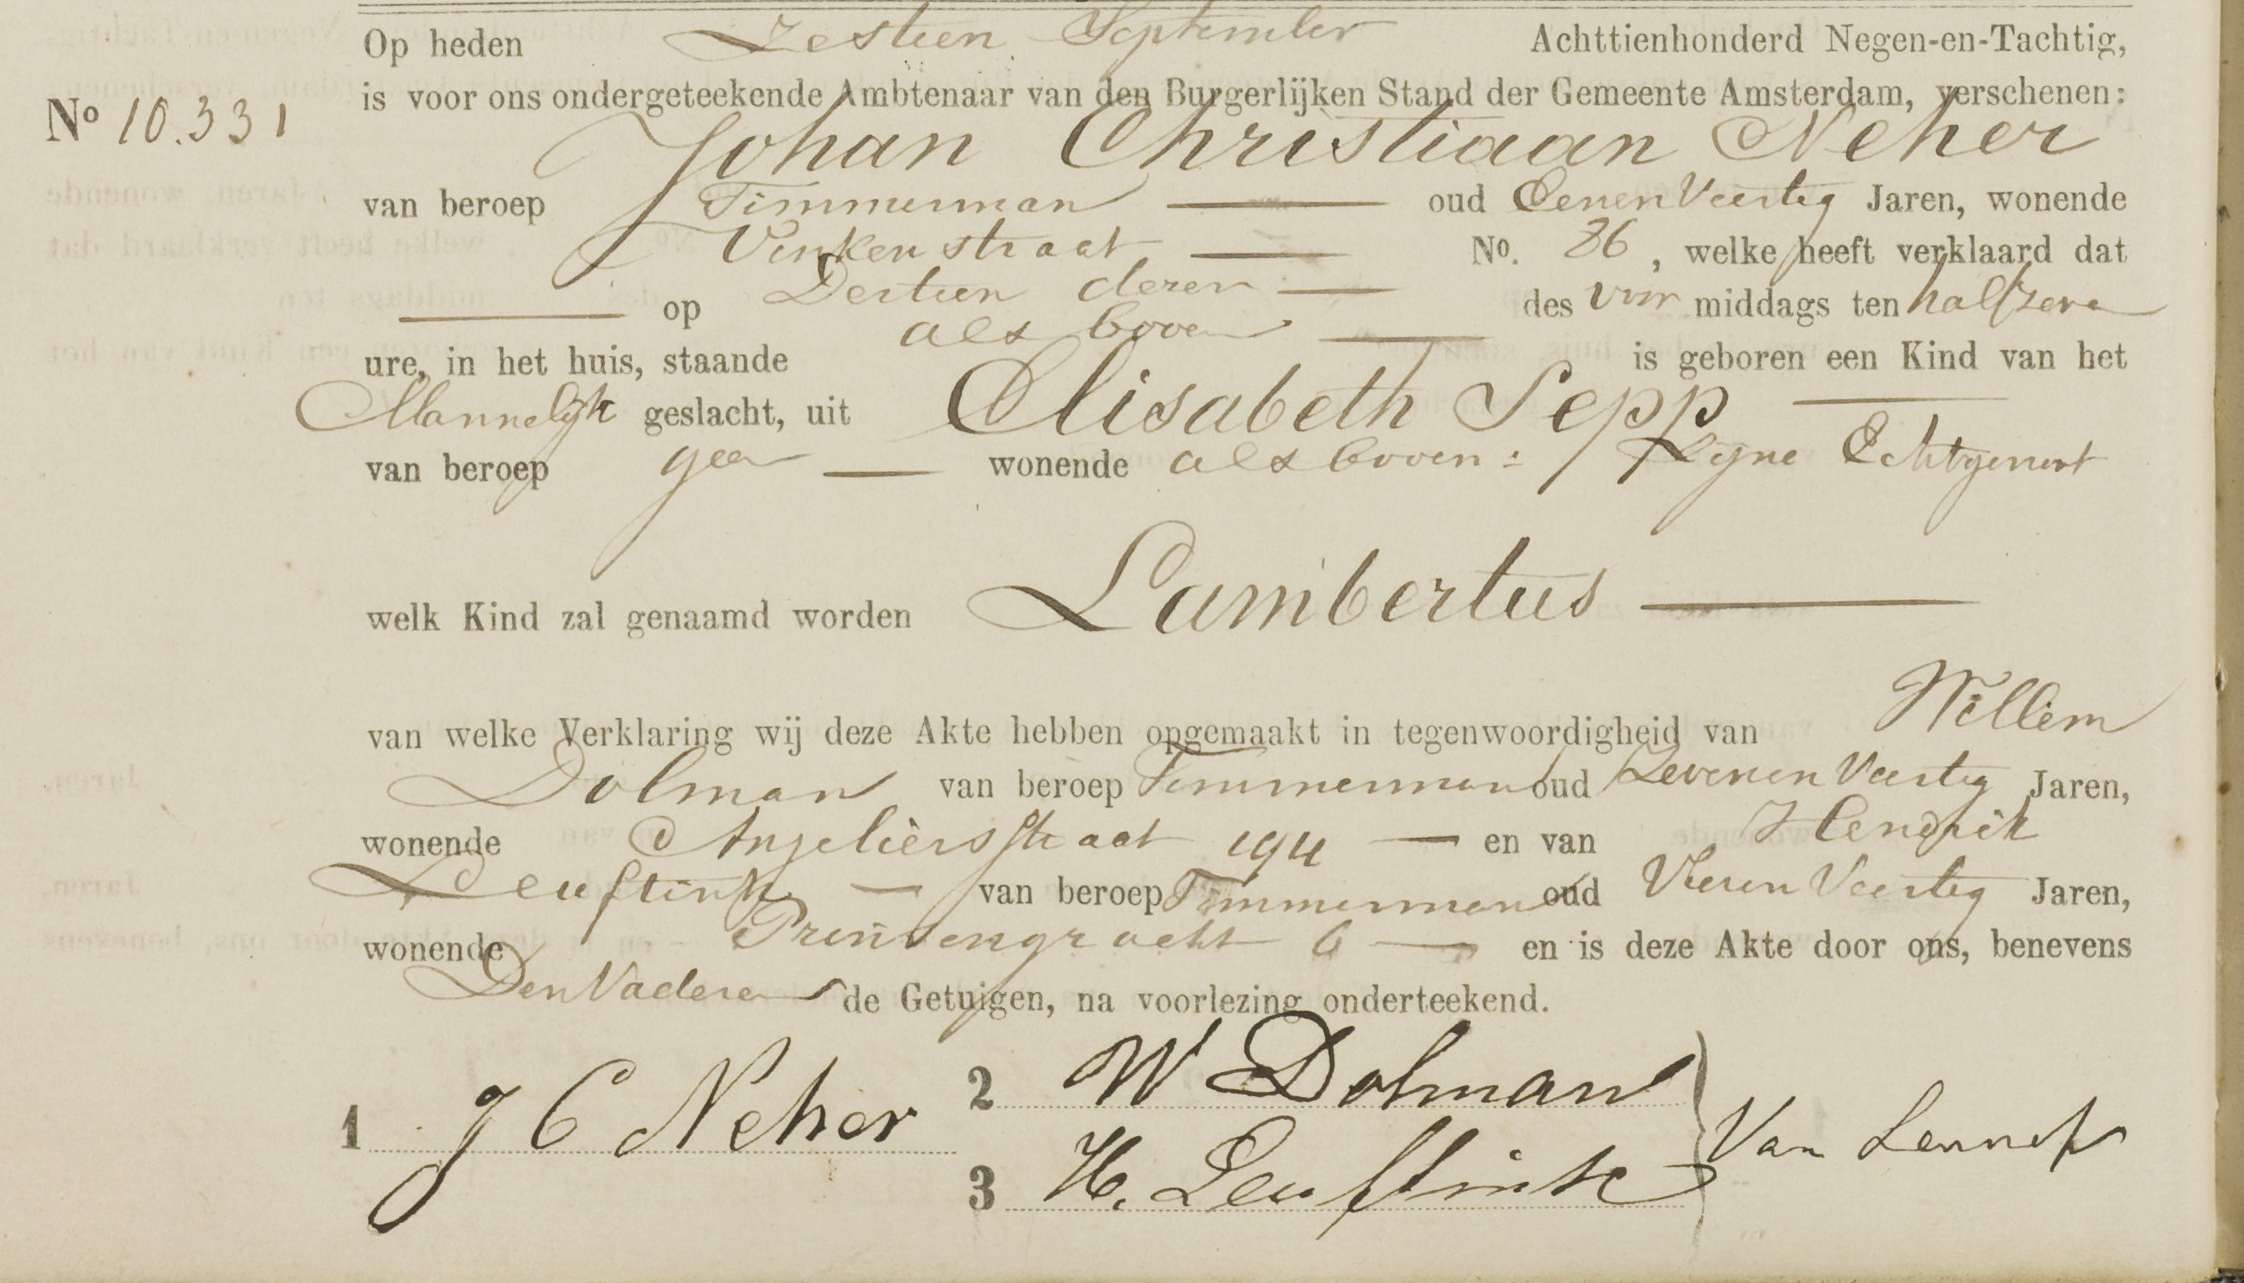 Op heden Zestien September Achttienhonderd Negen-en-Tachtig,
is voor ons ondergeteekende Ambtenaar van den Burgerlijken Stand der Gemeente Amsterdam, verschenen:
No 10.331
Johan Christiaan Neher
van beroep Timmerman oud Eenen Veertig Jaren, wonende
Vinkenstraat No. 86, welke heeft verklaard dat
op Dertien dezer des voor middags ten half zeven
ure, in het huis, staande als boven is geboren een Kind van het
Mannelijk geslacht, uit Elisabeth Sepp
van beroep geen wonende als boven: / Zijne Echtgenoot
welk Kind zal genaamd worden Lambertus
van welke Verklaring wij deze Akte hebben opgemaakt in tegenwoordigheid van Willem
Dolman van beroep Timmerman oud Zevenen Veertig Jaren,
wonende Angeliersstraat 194 en van Hendrik
Leuftink van beroep Timmerman oud Vieren Veertig Jaren,
wonende Prinsengracht 6 en is deze Akte door ons, benevens
Den Vader en de Getuigen, na voorlezing onderteekend.
1 J C Neher
2 W Dolman
3 H. Leuftink
Van Lennep